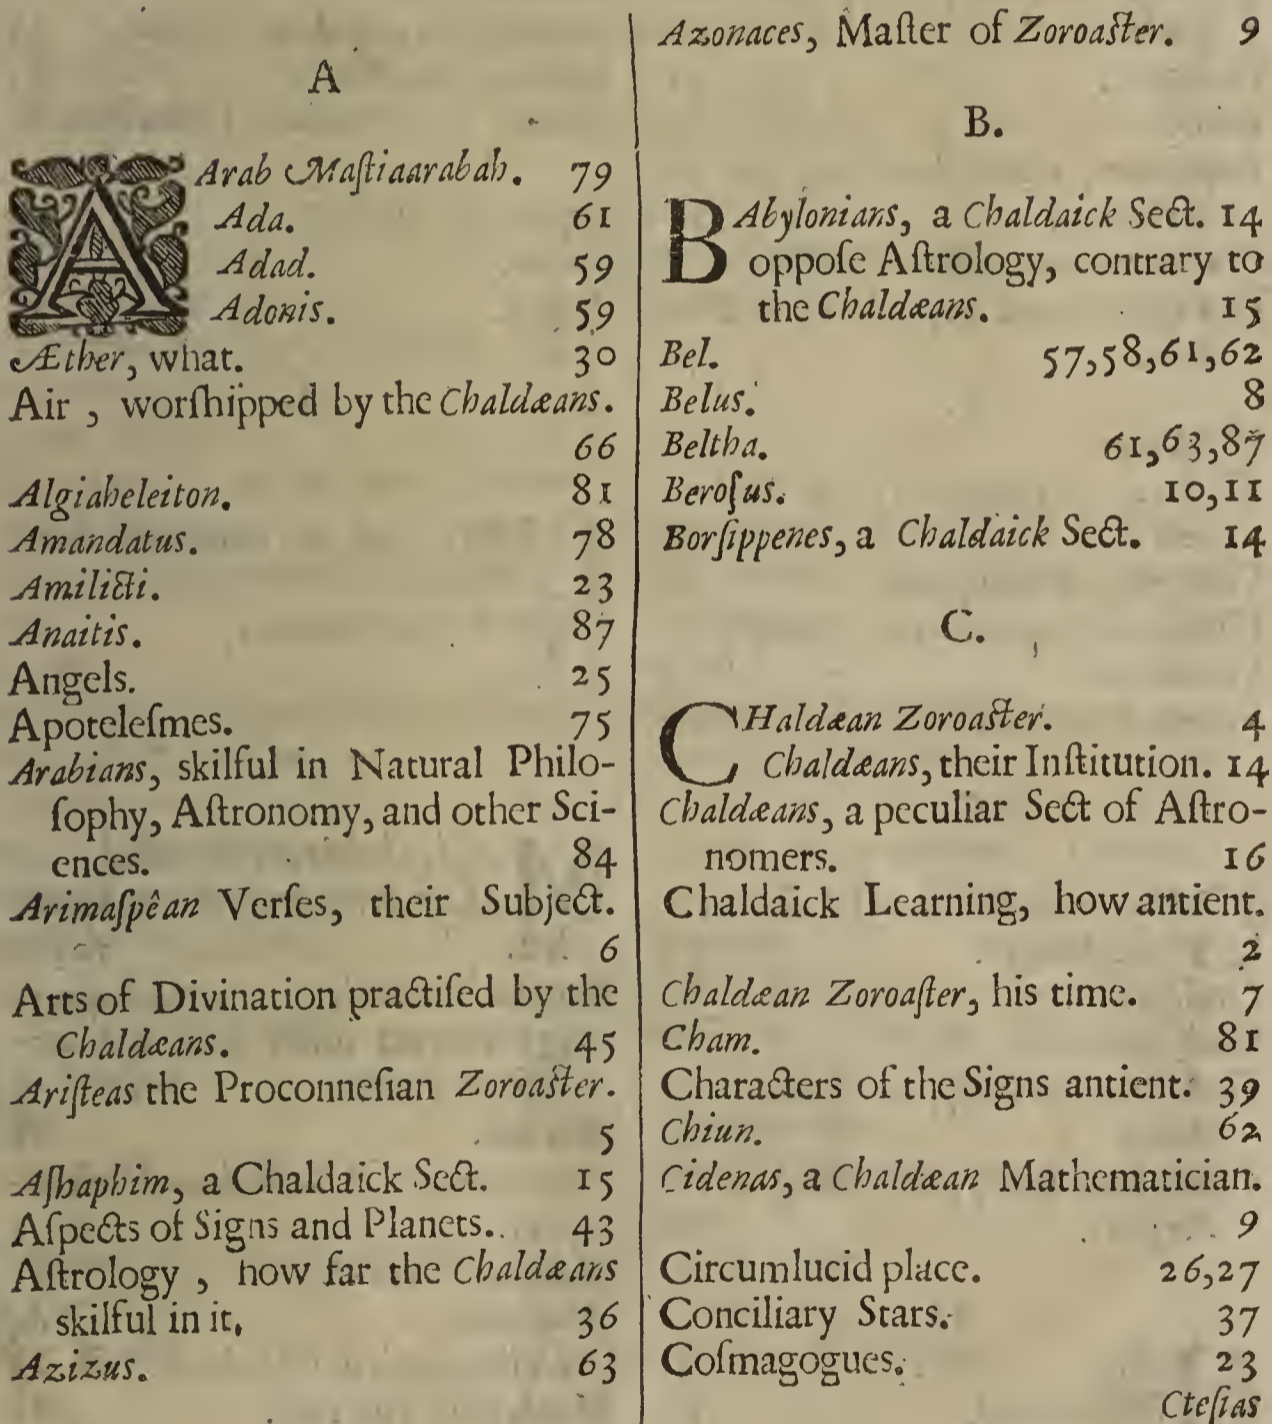 A
AArab Maſtiaarabah. 79
Ada. 61
Adad. 59
Adonis. 59
Æther, what. 30
Air , worſhipped by the Chaldæans.
66
Algiaheleiton. 81
Amandatus. 78
Amilicti. 23
Anaitis. 87
Angels. 25
Apoteleſmes. 75
Arabians, skilful in Natural Philo-
ſophy, Aſtronomy, and other Sci-
ences. 84
Arimaſpêan Verſes, their Subject.
6
Arts of Divination practiſed by the
Chaldæans. 45
Ariſteas the Proconneſian Zoroaſter.
5
Aſhaphim, a Chaldaick Sect. 15
Aſpects of Signs and Planets. 43
Aſtrology , how far the Chaldæans
skilful in it. 36
Azizus. 63
Azonaces, Maſter of Zoroaſter. 9
B.
BAbylonians, a Chaldaick Sect. 14
oppoſe Aſtrology, contrary to
the Chaldæans. 15
Bel. 57,58,61,62
Belus. 8
Beltha. 61,63,87
Beroſus. 10,11
Borſippenes, a Chaldaick Sect. 14
C.
CHaldæan Zoroaſter. 4
Chaldæans, their Inſtitution. 14
Chaldæans, a peculiar Sect of Aſtro-
nomers. 16
Chaldaick Learning, how antient.
2
Chaldæan Zoroaſter, his time. 7
Cham. 81
Characters of the Signs antient. 39
Chiun. 62
Cidenas, a Chaldæan Mathematician.
9
Circumlucid place. 26,27
Conciliary Stars. 37
Coſmagogues. 23
Cteſias